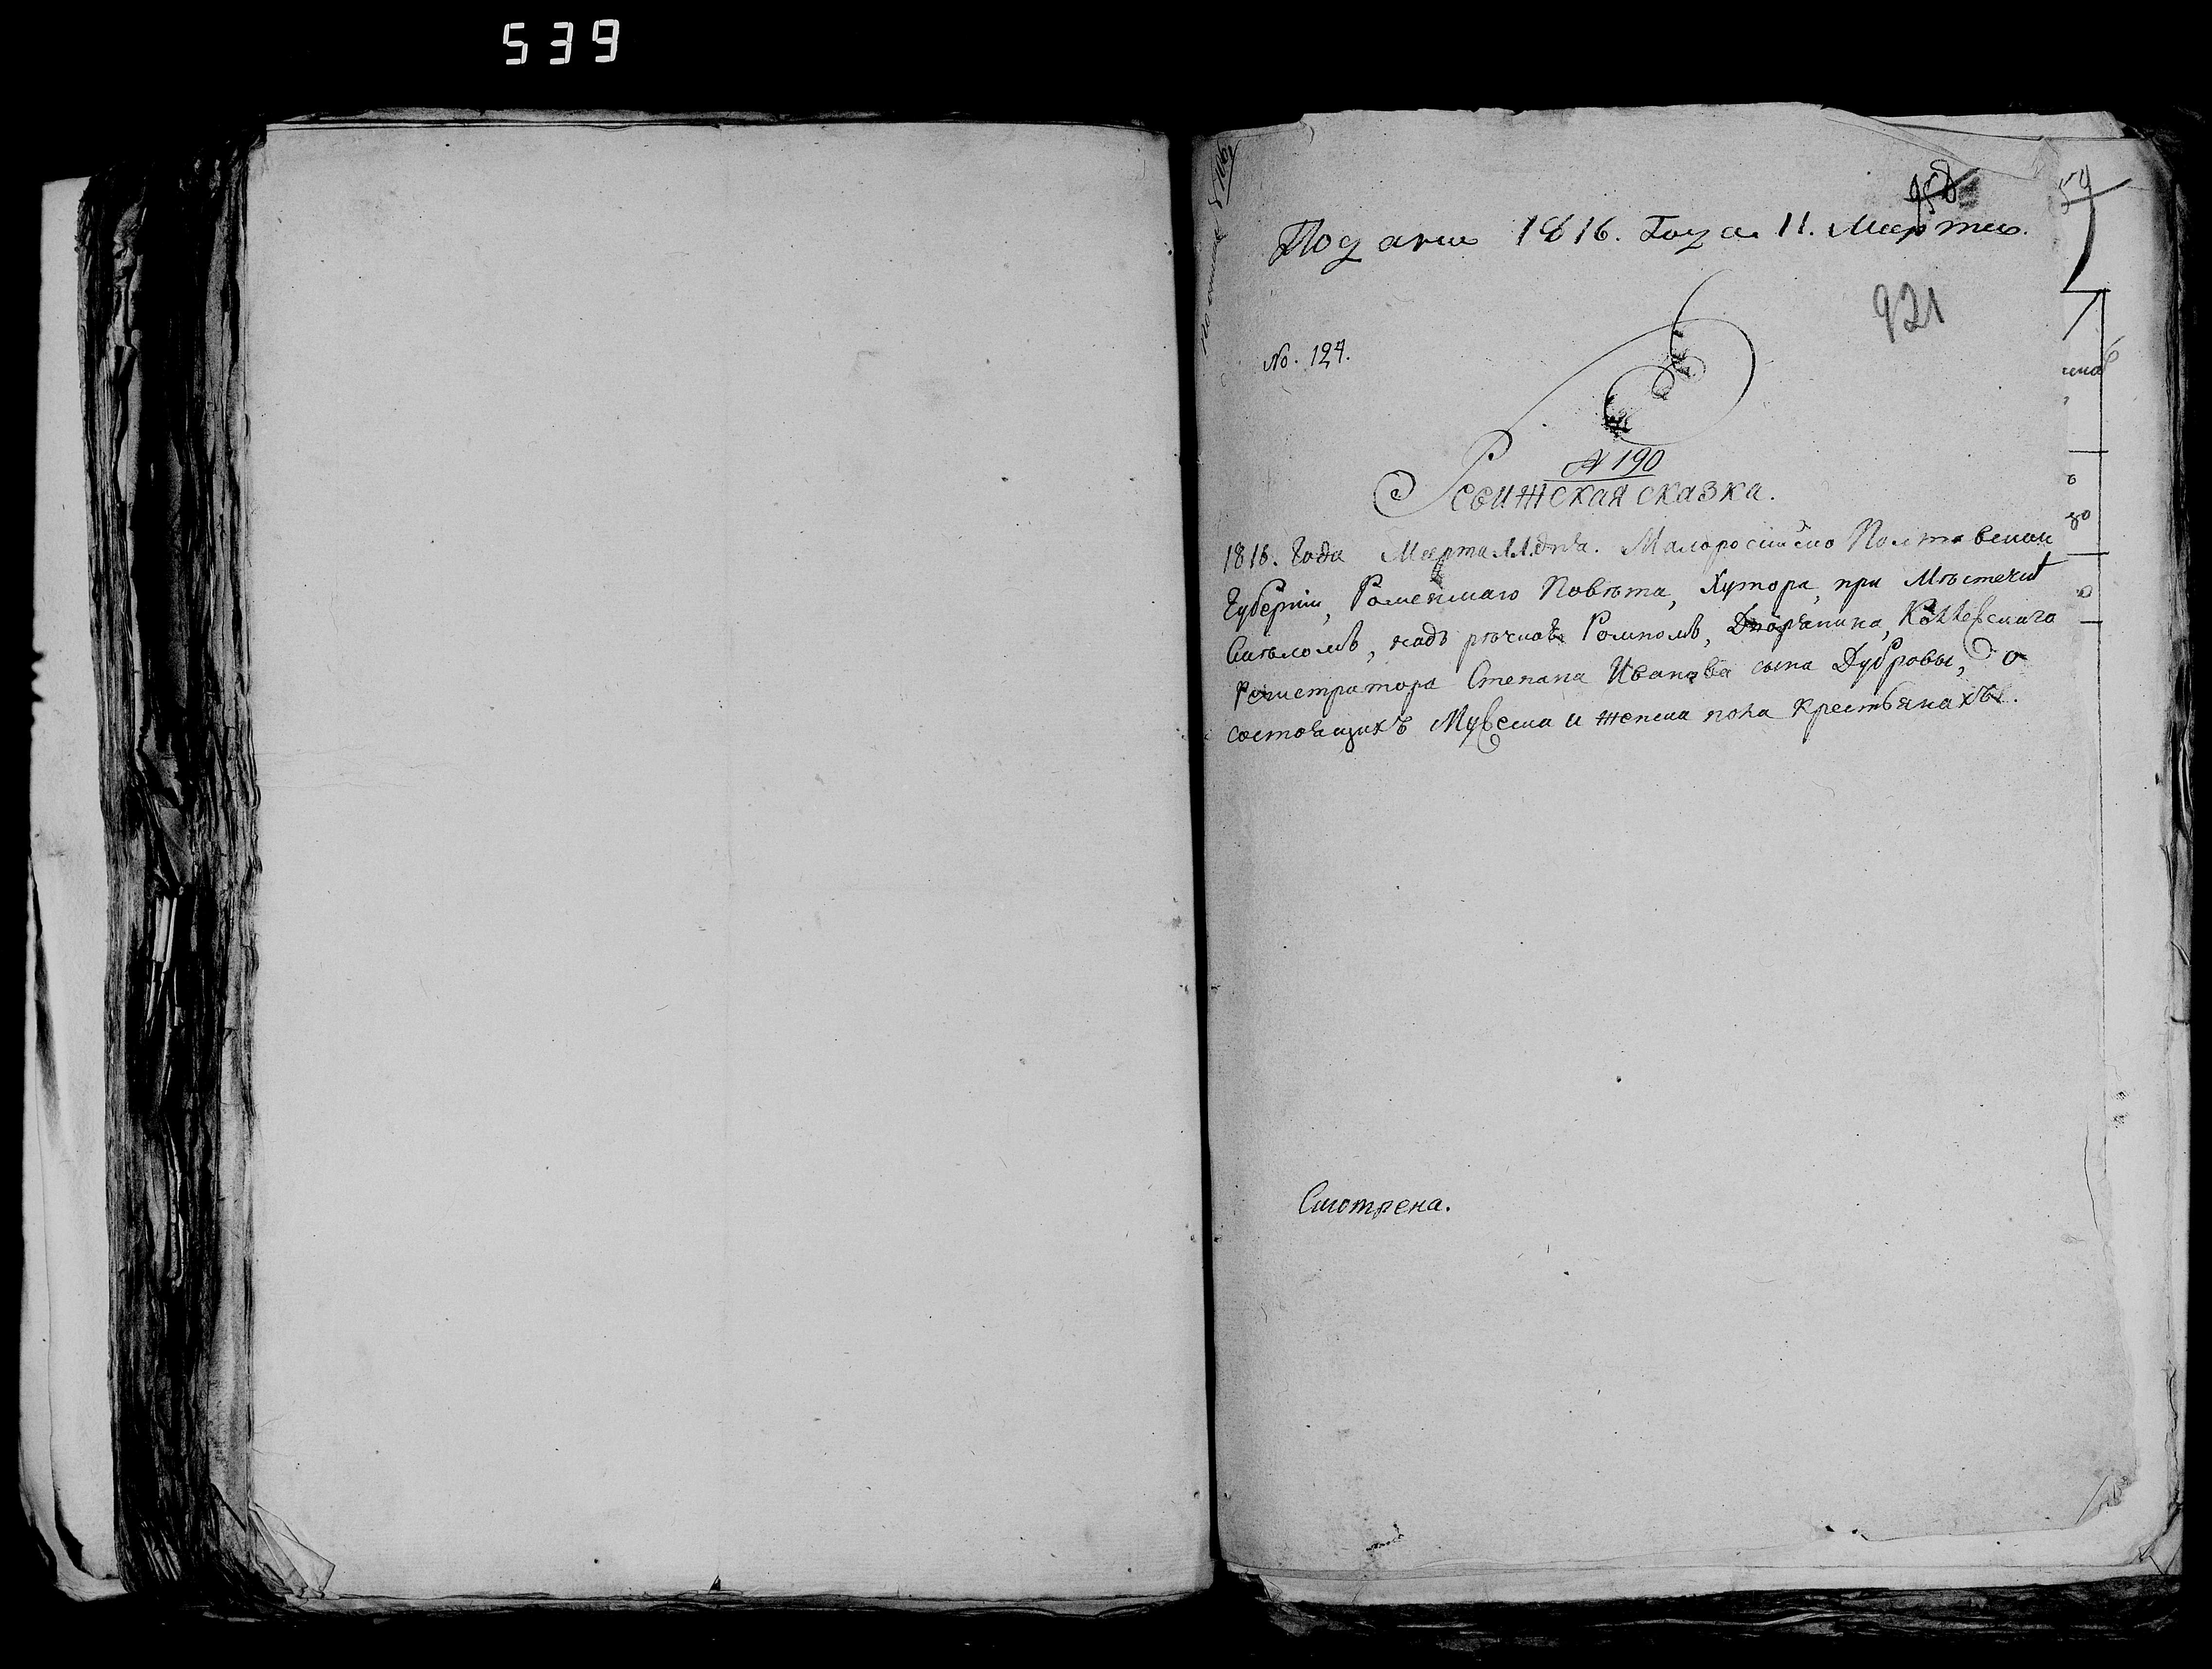 539
958
Подана 1816. Года 11. Марта.
921
No. 127.
N 190
Ревижская сказка.
1816. Года Марта 11. дня. Малоросийско Полтавской
Губернии, Роменскаго Повѣта, Хутора, при Мѣстечкѣ
Смѣломъ, надъ рѣчкою Ромномъ, Дворянина, Коллежскаго
Регистратора Степана Иванова сына Дубровы, о
состоящихъ Мужеска и женска пола крестьянахъ.
Смотрена.